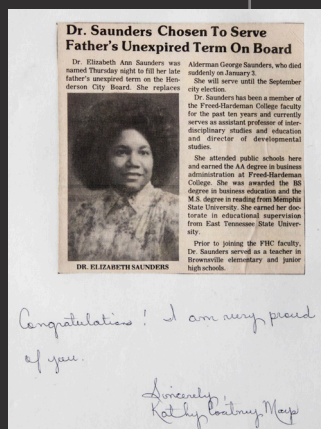 Dr. Saunders Chosen To Serve
Father's Unexpired Term On Board
Dr. Elizabeth Ann Saunders was
named Thursday night to fill her late
father's unexpired term on the Hen-
derson City Board. She replaces
Alderman George Saunders, who died
suddenly on January 3.
She will serve until the September
city election.
Dr. Saunders has been a member of
the Freed-Hardeman College faculty
for the past ten years and currently
serves as assistant professor of inter-
disciplinary studies and education
and director of developmental
studies.
She attended public schools here
and earned the AA degree in business
administration at Freed-Hardeman
College. She was awarded the BS
degree in business education and the
M.S. degree in reading from Memphis
State University. She earned her doc-
torate in educational supervision
from East Tennessee State Univer-
sity.
Prior to joining the FHC faculty,
Dr. Saunders served as a teacher in
Brownsville elementary and junior
high schools.
DR. ELIZABETH SAUNDERS
Congratulations! I am very proud
of you.
Sincerely,
Kathy Coatney Mays